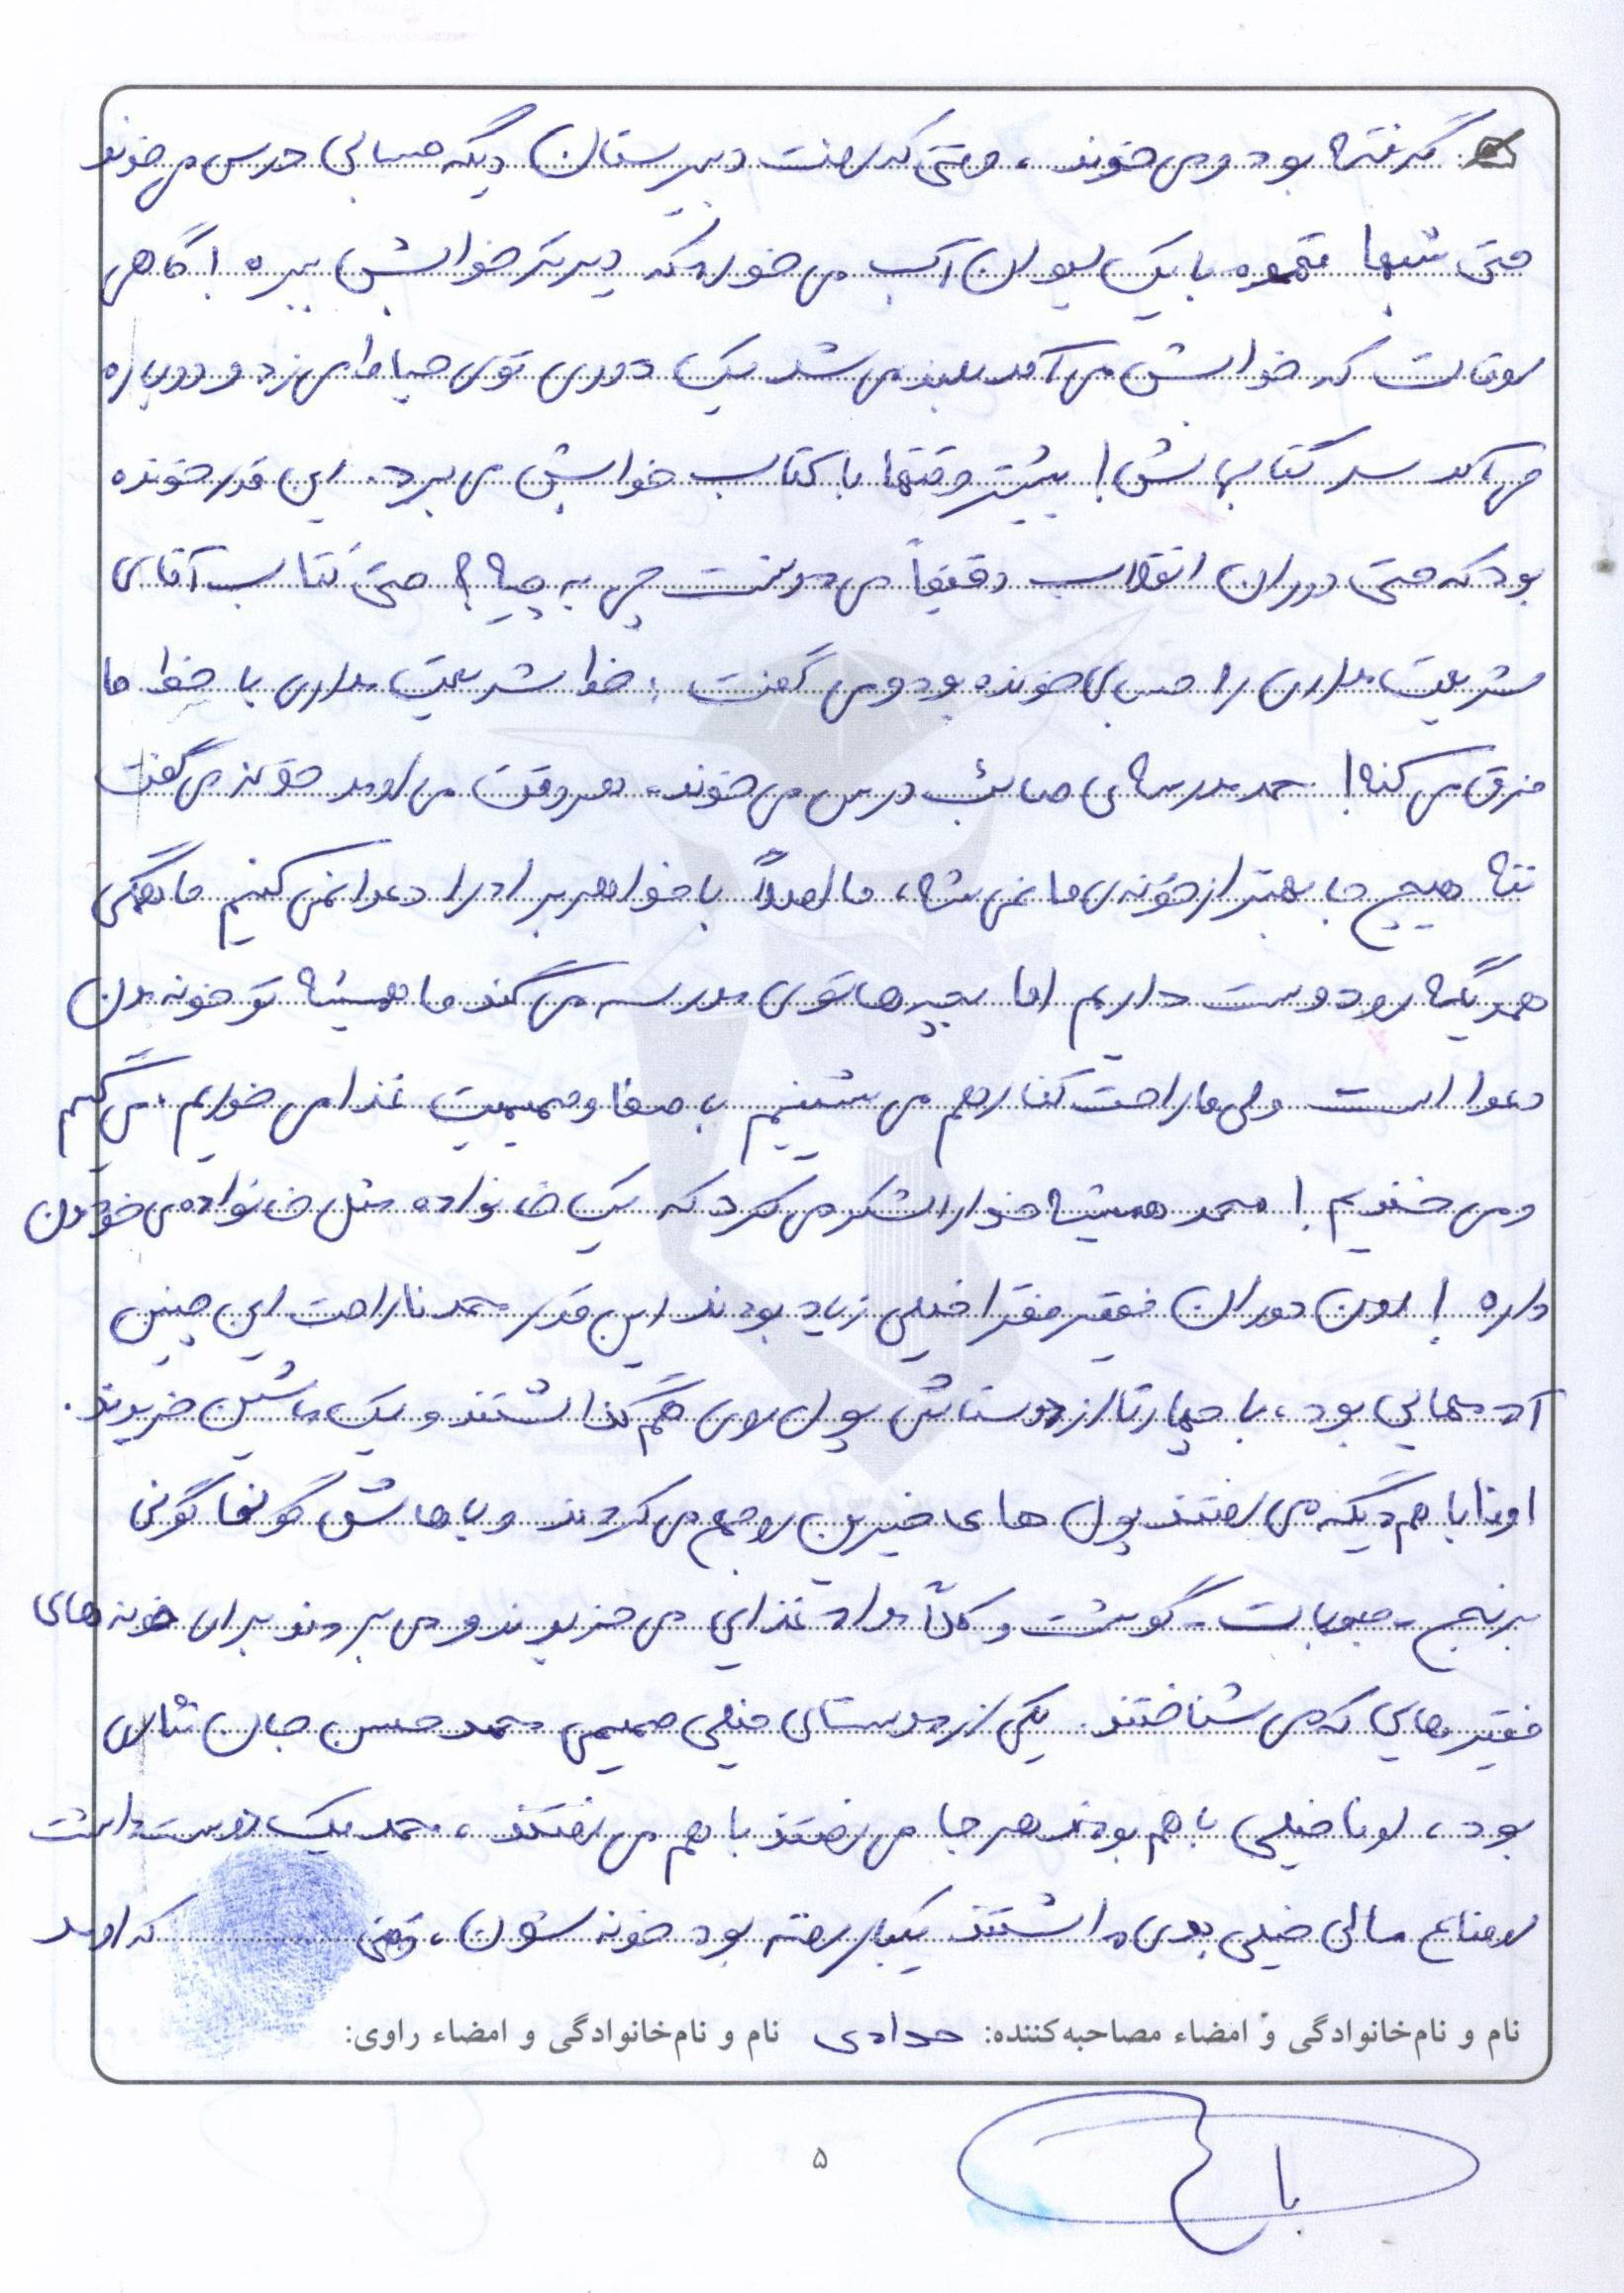 گرفته بود و می خوند، وقتی که رفت دبیرستان دیگه حسابی درس می خوند
حتی شبها قهوه با یک لیوان آب می خورد که دیرتر خوابش ببره! گاهی
اوقات که خوابش می آمد بلند می شد یک دوری توی حیاط می زد و دوباره
می آمد سر کتابهاش! بیشتر وقتها با کتاب خوابش می برد. این قدر خونده
بود که حتی دوران انقلاب دقیقاً می دونست چی به چیه؟ حتی کتاب آقای
شریعت مداری را حسابی خونده بود و می گفت: خط شریعت مداری با خط ما
فرق می کنه! محمد مدرسه ی صائب درس می خوند، هر وقت می اومد خونه می گفت
ننه هیچ جا بهتر از خونه ی ما نمی شه، ما اصلاً با خواهر برادرا دعوا نمی کنیم ما همگی
همدیگه رو دوست داریم اما بچه ها توی مدرسه می گند ما همیشه تو خونه مون
دعوا است ولی ما راحت کنار هم می شینیم با صفا و صمیمیت غذا می خوریم، می گیم
و می خندیم! محمد همیشه خدا را شکر می کرد که یک خانواده مثل خانواده ی خودمون
داره! اون دوران فقیر فقرا خیلی زیاد بودند این قدر محمد ناراحت این چنین
آدمهایی بود، با چهار تا از دوستاش پول روی هم گذاشتند و یک ماشین خریدند.
اونا با هم دیگه می رفتند پول های خیرین رو جمع می کردند و باهاش گونی گونی
برنج - حبوبات - گوشت و کلاً مواد غذایی می خریدند و می بردند برای خونه های
فقیرهایی که می شناختند. یکی از دوستای خیلی صمیمی محمد حسن جان نثاری
بود، اونا خیلی با هم بودند هر جا می رفتند با هم می رفتند، محمد یک دوست داشت
اوضاع مالی خیلی بدی داشتند یکبار رفته بود خونه شون، وقتی که اومد
نام و نام‌خانوادگی و امضاء مصاحبه‌کننده: حدادی نام و نام‌خانوادگی و امضاء راوی:
۵